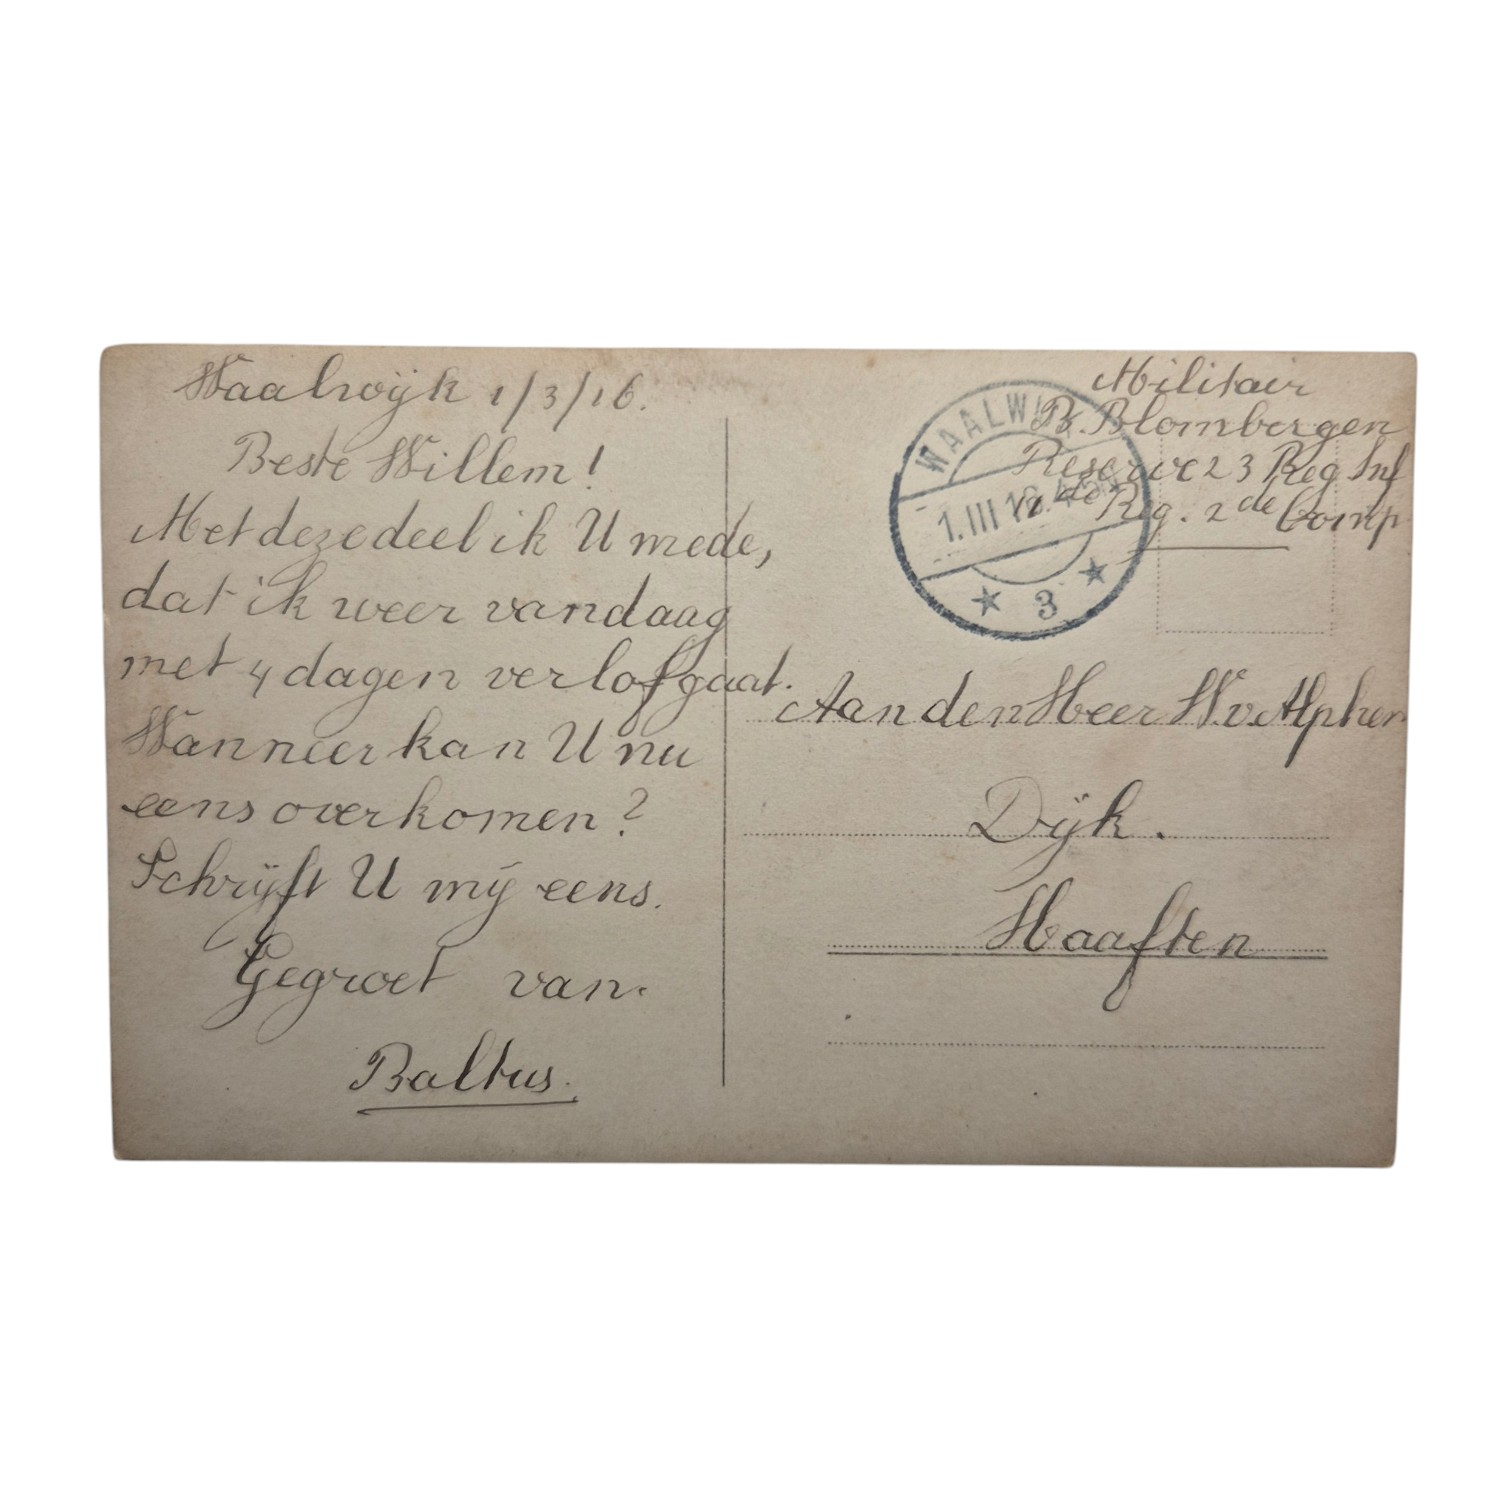 Waalwijk 1/3/16.
Beste Willem!
Met deze deel ik U mede,
dat ik weer vandaag
met 4 dagen verlof gaat.
Wanneer kan U nu
eens overkomen?
Schrijft U mij eens.
Gegroet van.
Baltus.
Militair
B. Blombergen
Reserve 23 Reg Inf
de Reg. 2de Comp
WAALWIJK
1.III 16. 4-5N
3
Aan den Heer W. v. Alphen
Dijk.
Haaften